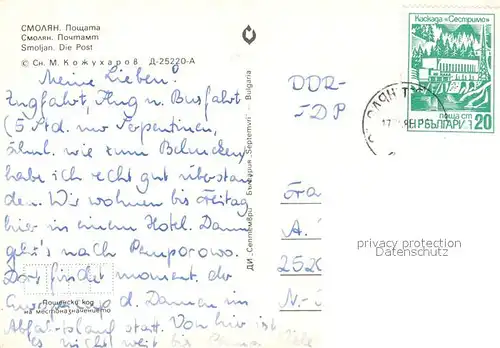 СМОЛЯН. Пощата
Смолян. Почтамт
Smoljan. Die Post
© Сн. М. Кожухаров Д-25220-А
Каскада „Сестримо"
поща ст
НР БЪЛГАРИЯ 20
Meine Lieben!
Zugfahrt, Flug u. Busfahrt
(5 Std. nur Serpentinen,
ähnl. wie zum
habe ich recht gut überstan-
den. Wir wohnen bis Freitag
hier in einem Hotel. Dann
geht's nach Pamporowo.
Dort findet moment. der
d. Damen im
Abfahrtslauf statt. Von hier ist
es nicht weit bis
DDR-
Fra
A.
252
N.-
ДИ „Септември" България „Septemvri" - Bulgaria
Пощенски код
на местоназначението
privacy protection
Datenschutz